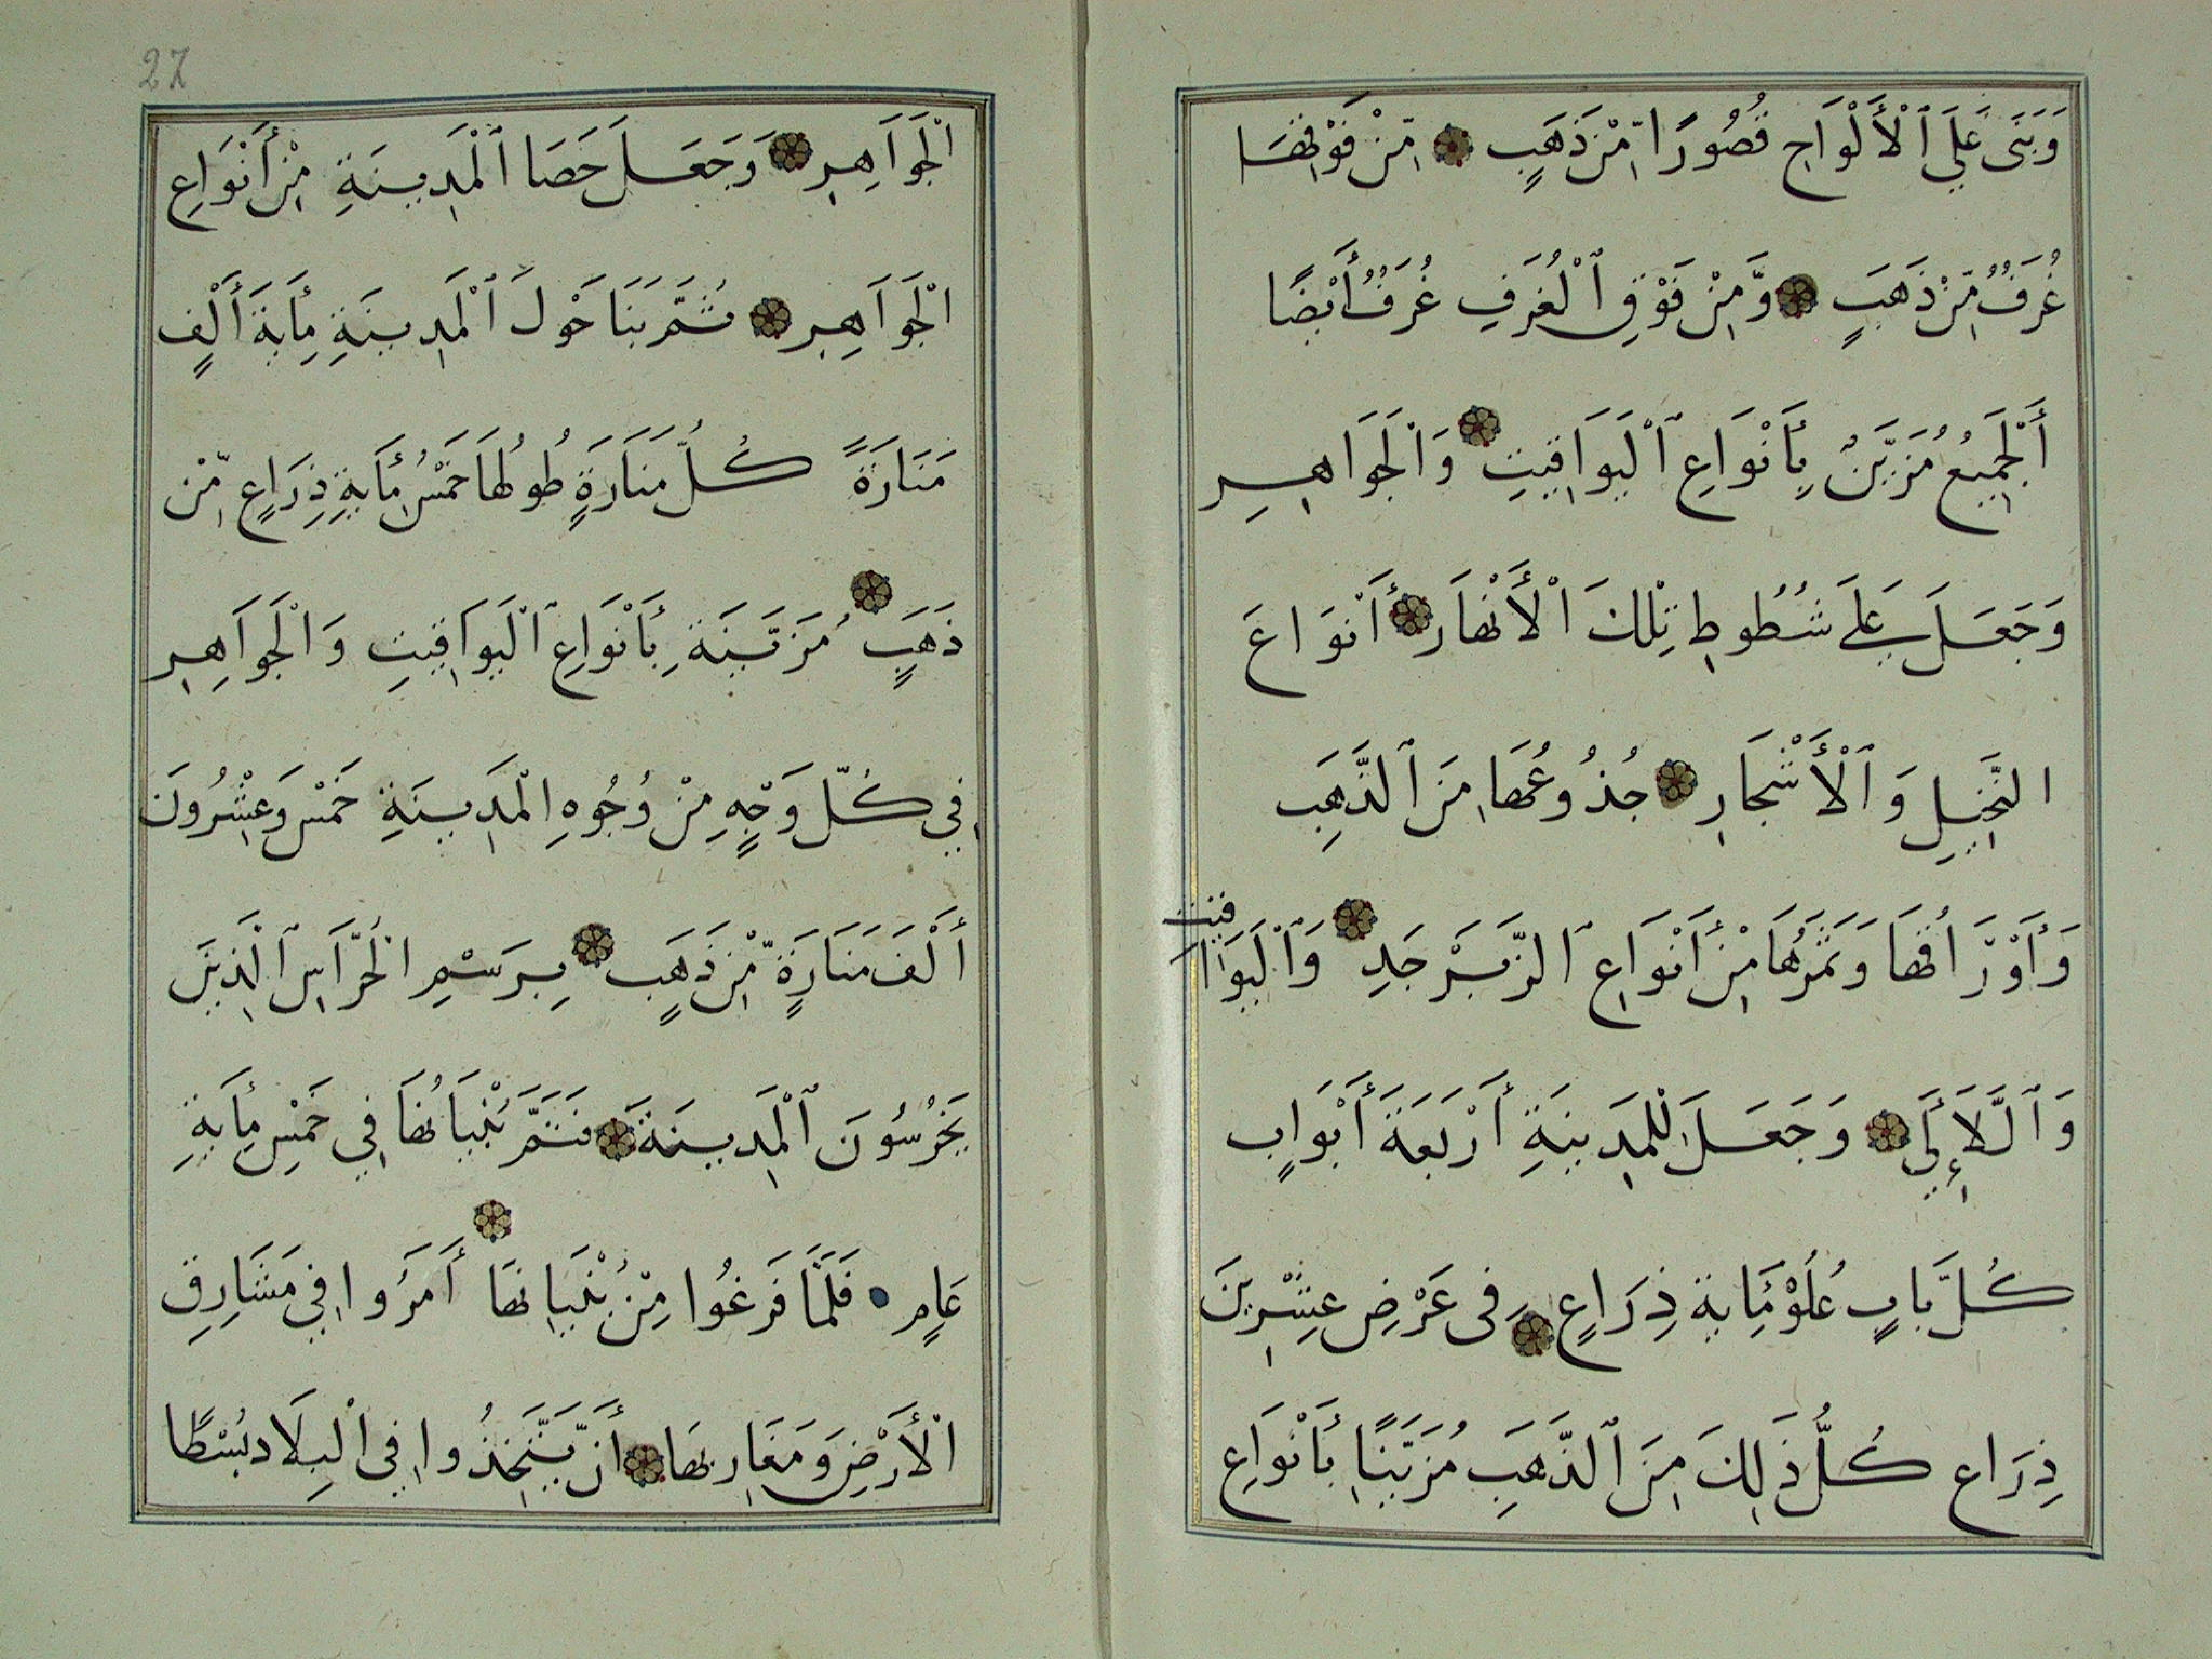 وَبَنَى عَلَى ٱلْأَلْوَاحِ قُصُورًا مِّنْ ذَهَبٍ مِّنْ فَوْقِهَا
غُرَفٌ مِّنْ ذَهَبٍ وَّمِنْ فَوْقِ ٱلْغُرَفِ غُرَفٌ أَيْضًا
أَلْجَمِيعُ مُزَيَّنٌ بِأَنْوَاعِ ٱلْيَوَاقِيتِ وَالْجَوَاهِرِ
وَجَعَلَ عَلَى شُطُوطِ تِلْكَ الْأَنْهَارِ أَنْوَاعَ
النَّخِيلِ وَٱلْأَشْجَارِ جُذُوعُهَا مِنَ ٱلذَّهَبِ
وَأَوْرَاقُهَا وَثَمَرُهَا مِنْ أَنْوَاعِ ٱلزَّبَرْجَدِ وَٱلْيَوَاقيت
وَٱلَّلَآلِئِ وَجَعَلَ لِلْمَدِينَةِ أَرْبَعَةَ أَبْوَابٍ
كُلَّ بَابٍ عُلُوْ مِّايَةِ ذِرَاعٍ فِى عَرْضِ عِشْرِينَ
ذِرَاعٍ كُلُّ ذَلِكَ مِنَ ٱلذَّهَبِ مُزَيَّنًا بِأَنْوَاعِ
الْجَوَاهِرِ وَجَعَلَ حَصَا ٱلْمَدِينَةِ مِنْ أَنْوَاعِ
الْجَوَاهِرِ ثُمَّ بَنَا حَوْلَ ٱلْمَدِينَةِ مِأيَةَ أَلْفٍ
مَنَارَةً كُلُّ مَنَارَةٍ طُولُهَا خَمْسُ مِأيَةِ ذِرَاعٍ مِّنْ
ذَهَبٍ مُزَيَّنَةٍ بِأَنْوَاعِ ٱلْيَوَاقِيتِ وَالْجَوَاهِرِ
فِي كُلِّ وَجْهٍ مِنْ وُجُوهِ الْمَدِينَةِ خَمْسَ وَعِشْرُونَ
أَلْفَ مَنَارَةٍ مِّنْ ذَهَبٍ بِرَسْمِ الْحُرَّاسِ ٱلَّذِينَ
يَحْرُسُونَ ٱلْمَدِينَةَ فَتَمَّ بُنْيَانُهَا فِي خَمْسِ مِأيَةِ
عَامٍ فَلَمَّا فَرَغُوا مِنْ بُنْيَانِهَا أَمَرُوا فِي مَشَارِقِ
الْأَرْضِ وَمَغَارِبِهَا أَنْ يَّتَّخِذُوا فِي الْبِلَادِ بُسْطًا
27